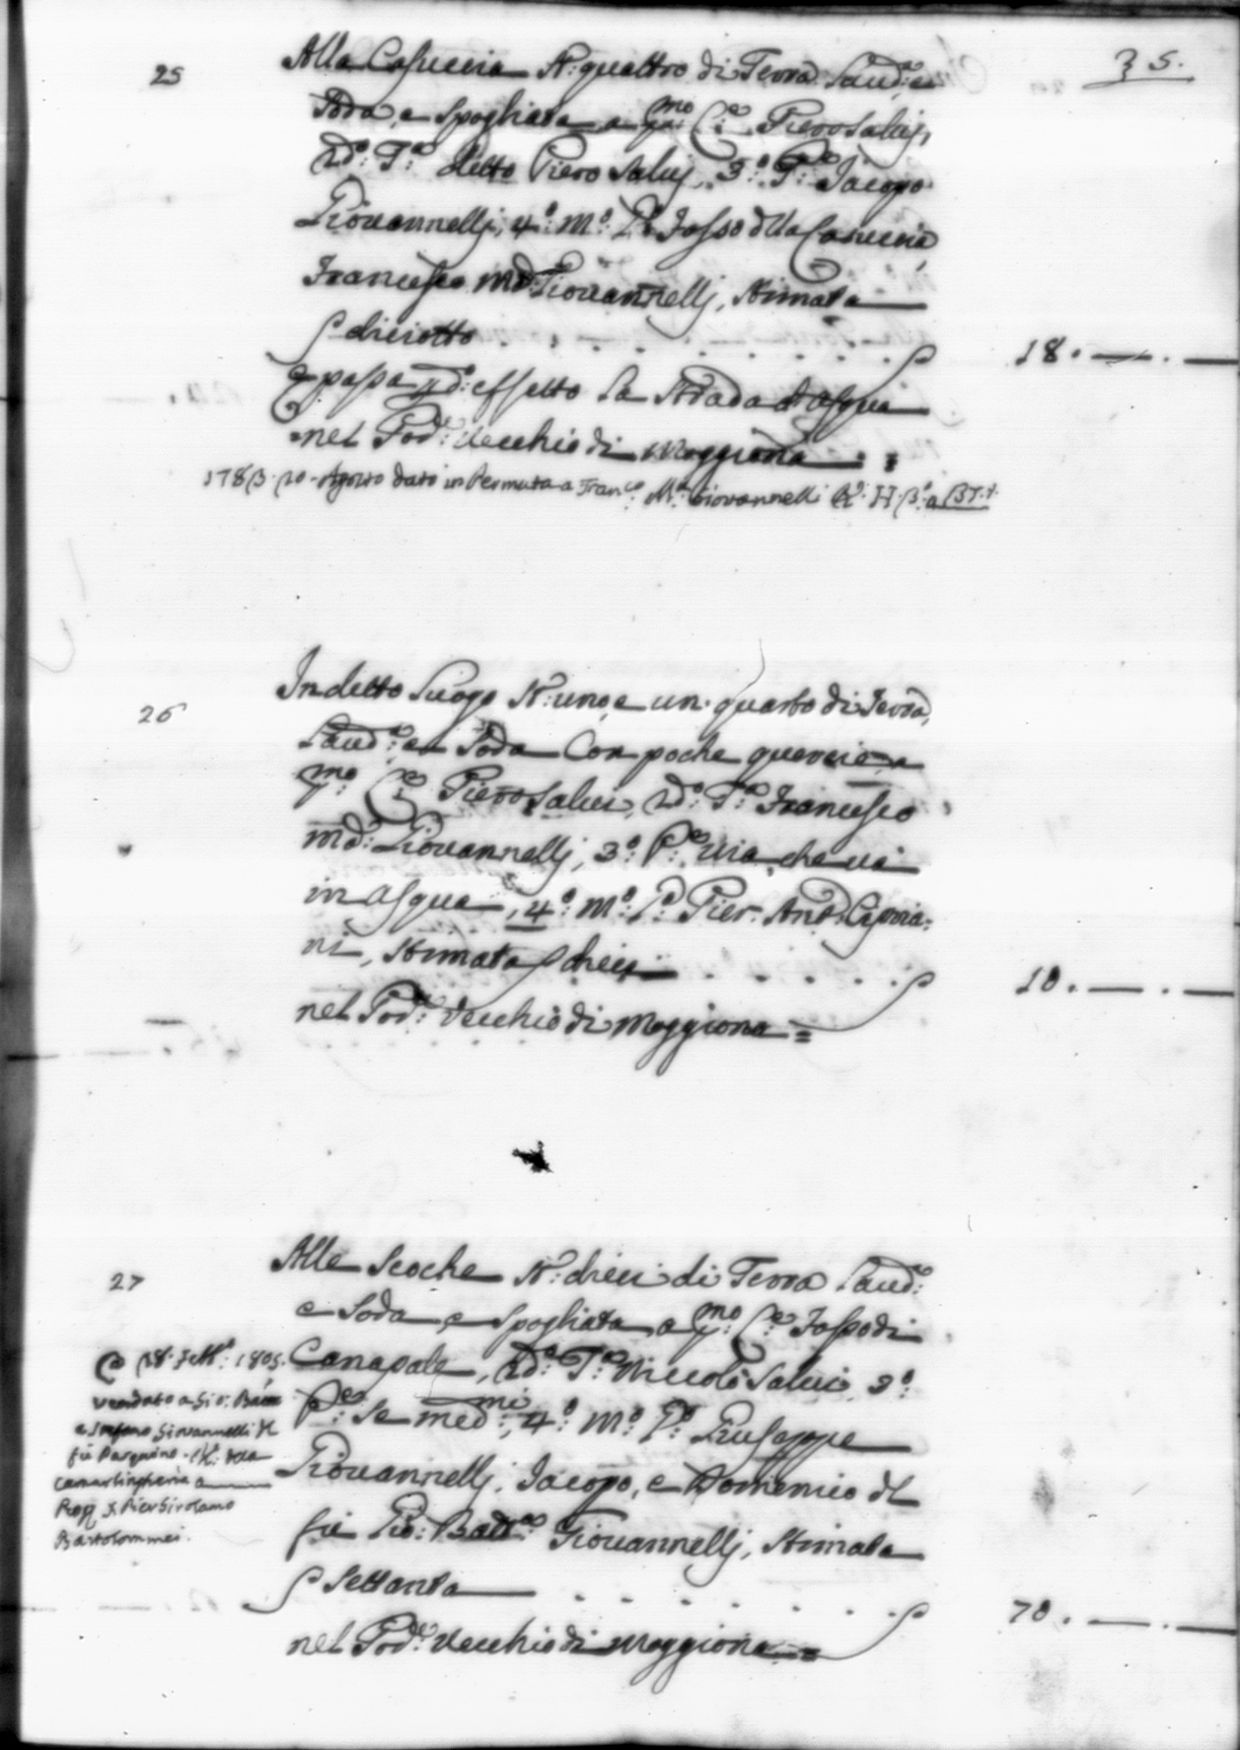 35.
25
Alla Casuccia N: quattro di Terra Laud:ª e
Soda, e spogliata a p:mo C:e Piero Salvj,
2do: T:º detto Piero Salvj, 3:º P:e Jacopo
Giovannellj, 4:º m:º P:º Fosso d'lla Casuccia,
Francesco Mª: Giovannellj, stimata
S diciotto . . . . . . . . S 18. — . —
e passa p d: effetto la strada d'Asqua
nel Pod:e Vecchio di Moggiona =
1783. 20. Agosto dato in Permuta a Fran:co M:ª Giovannelli
26
In detto Luogo N: uno, e un quarto di Terra,
Laud:ª e Soda Con poche quercie a
p:mo C:e Piero Salvi, 2do: T:º Francesco
Mª: Giovannellj, 3:º P:e Via, che và
in Asqua, 4:º m:º P:º Pier Antº: Cipria:
ni, stimata S dieci . . . . . S 10. — . —
nel Pod:e Vecchio di Moggiona =
27
Alle Scoche N: dieci di Terra Laud:ª
e Soda, e spogliata, a p:mo C:e Fosso di
Canapale, 2do: T:º Niccolò Salvi 3:º
P:e Se med:mi, 4:º m:º P:º Giuseppe
Giovannellj, Jacopo, e Domenico d'l
fù Gio: Batt:ª Giovannellj, stimata
S Settanta . . . . . . S 70. — . —
nel Pod:e Vecchio di Moggiona =
28 Sett:e 1805.
vendato a Gio: Batta
e Stefano Giovannelli
fù Pasquino
Camarlingheria a
Rog. Pier Girolamo
Bartolommei.